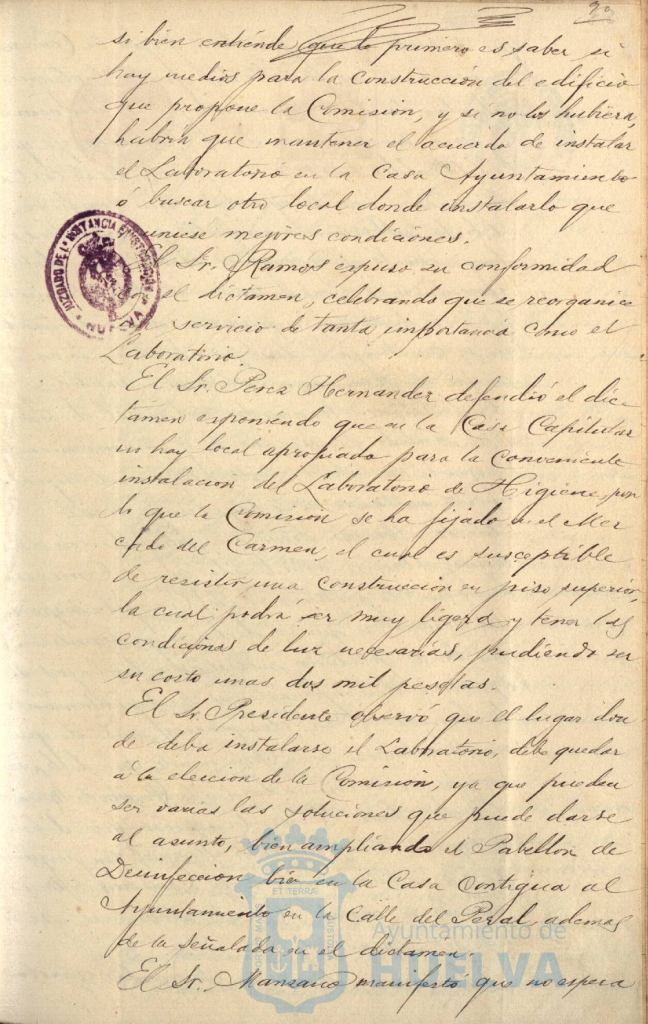 29
si bien entiende que lo primero es saber si
hay medios para la construcción del edificio
que propone la Comisión, y si no los hubiera,
habria que mantener el acuerdo de instalar
el Laboratorio en la Casa Ayuntamiento
ó buscar otro local donde instalarlo que
uniese mejores condiciones.
El Sr. Ramos expuso su conformidad
el dictamen, celebrando que se reorganice
servicio de tanta importancia como el
Laboratorio.
El Sr. Perez Hernandez defendió el dic-
tamen exponiendo que en la Casa Capitular
no hay local apropiado para la conveniente
instalacion del Laboratorio de Higiene, por
lo que la Comisión se ha fijado en el Mer
cado del Carmen, el cual es susceptible
de resistir una construccion en piso superior,
la cual podrá ser muy ligera y tener las
condiciones de luz necesarias, pudiendo ser
su costo unas dos mil pesetas.
El Sr. Presidente observó que el lugar don
de deba instalarse el Laboratorio, debe quedar
á la eleccion de la Comisión, ya que pueden
ser varias las soluciones que puede darse
al asunto, bien ampliando el Pabellon de
Desinfeccion bien en la Casa Contigua al
Ayuntamiento en la Calle del Peral, ademas
de la señalada en el dictamen.
El Sr. Manzano manifestó que no espera
JUZGADO DE 1ª INSTANCIA E INSTRUCCIÓN
HUELVA
Ayuntamiento de
HUELVA